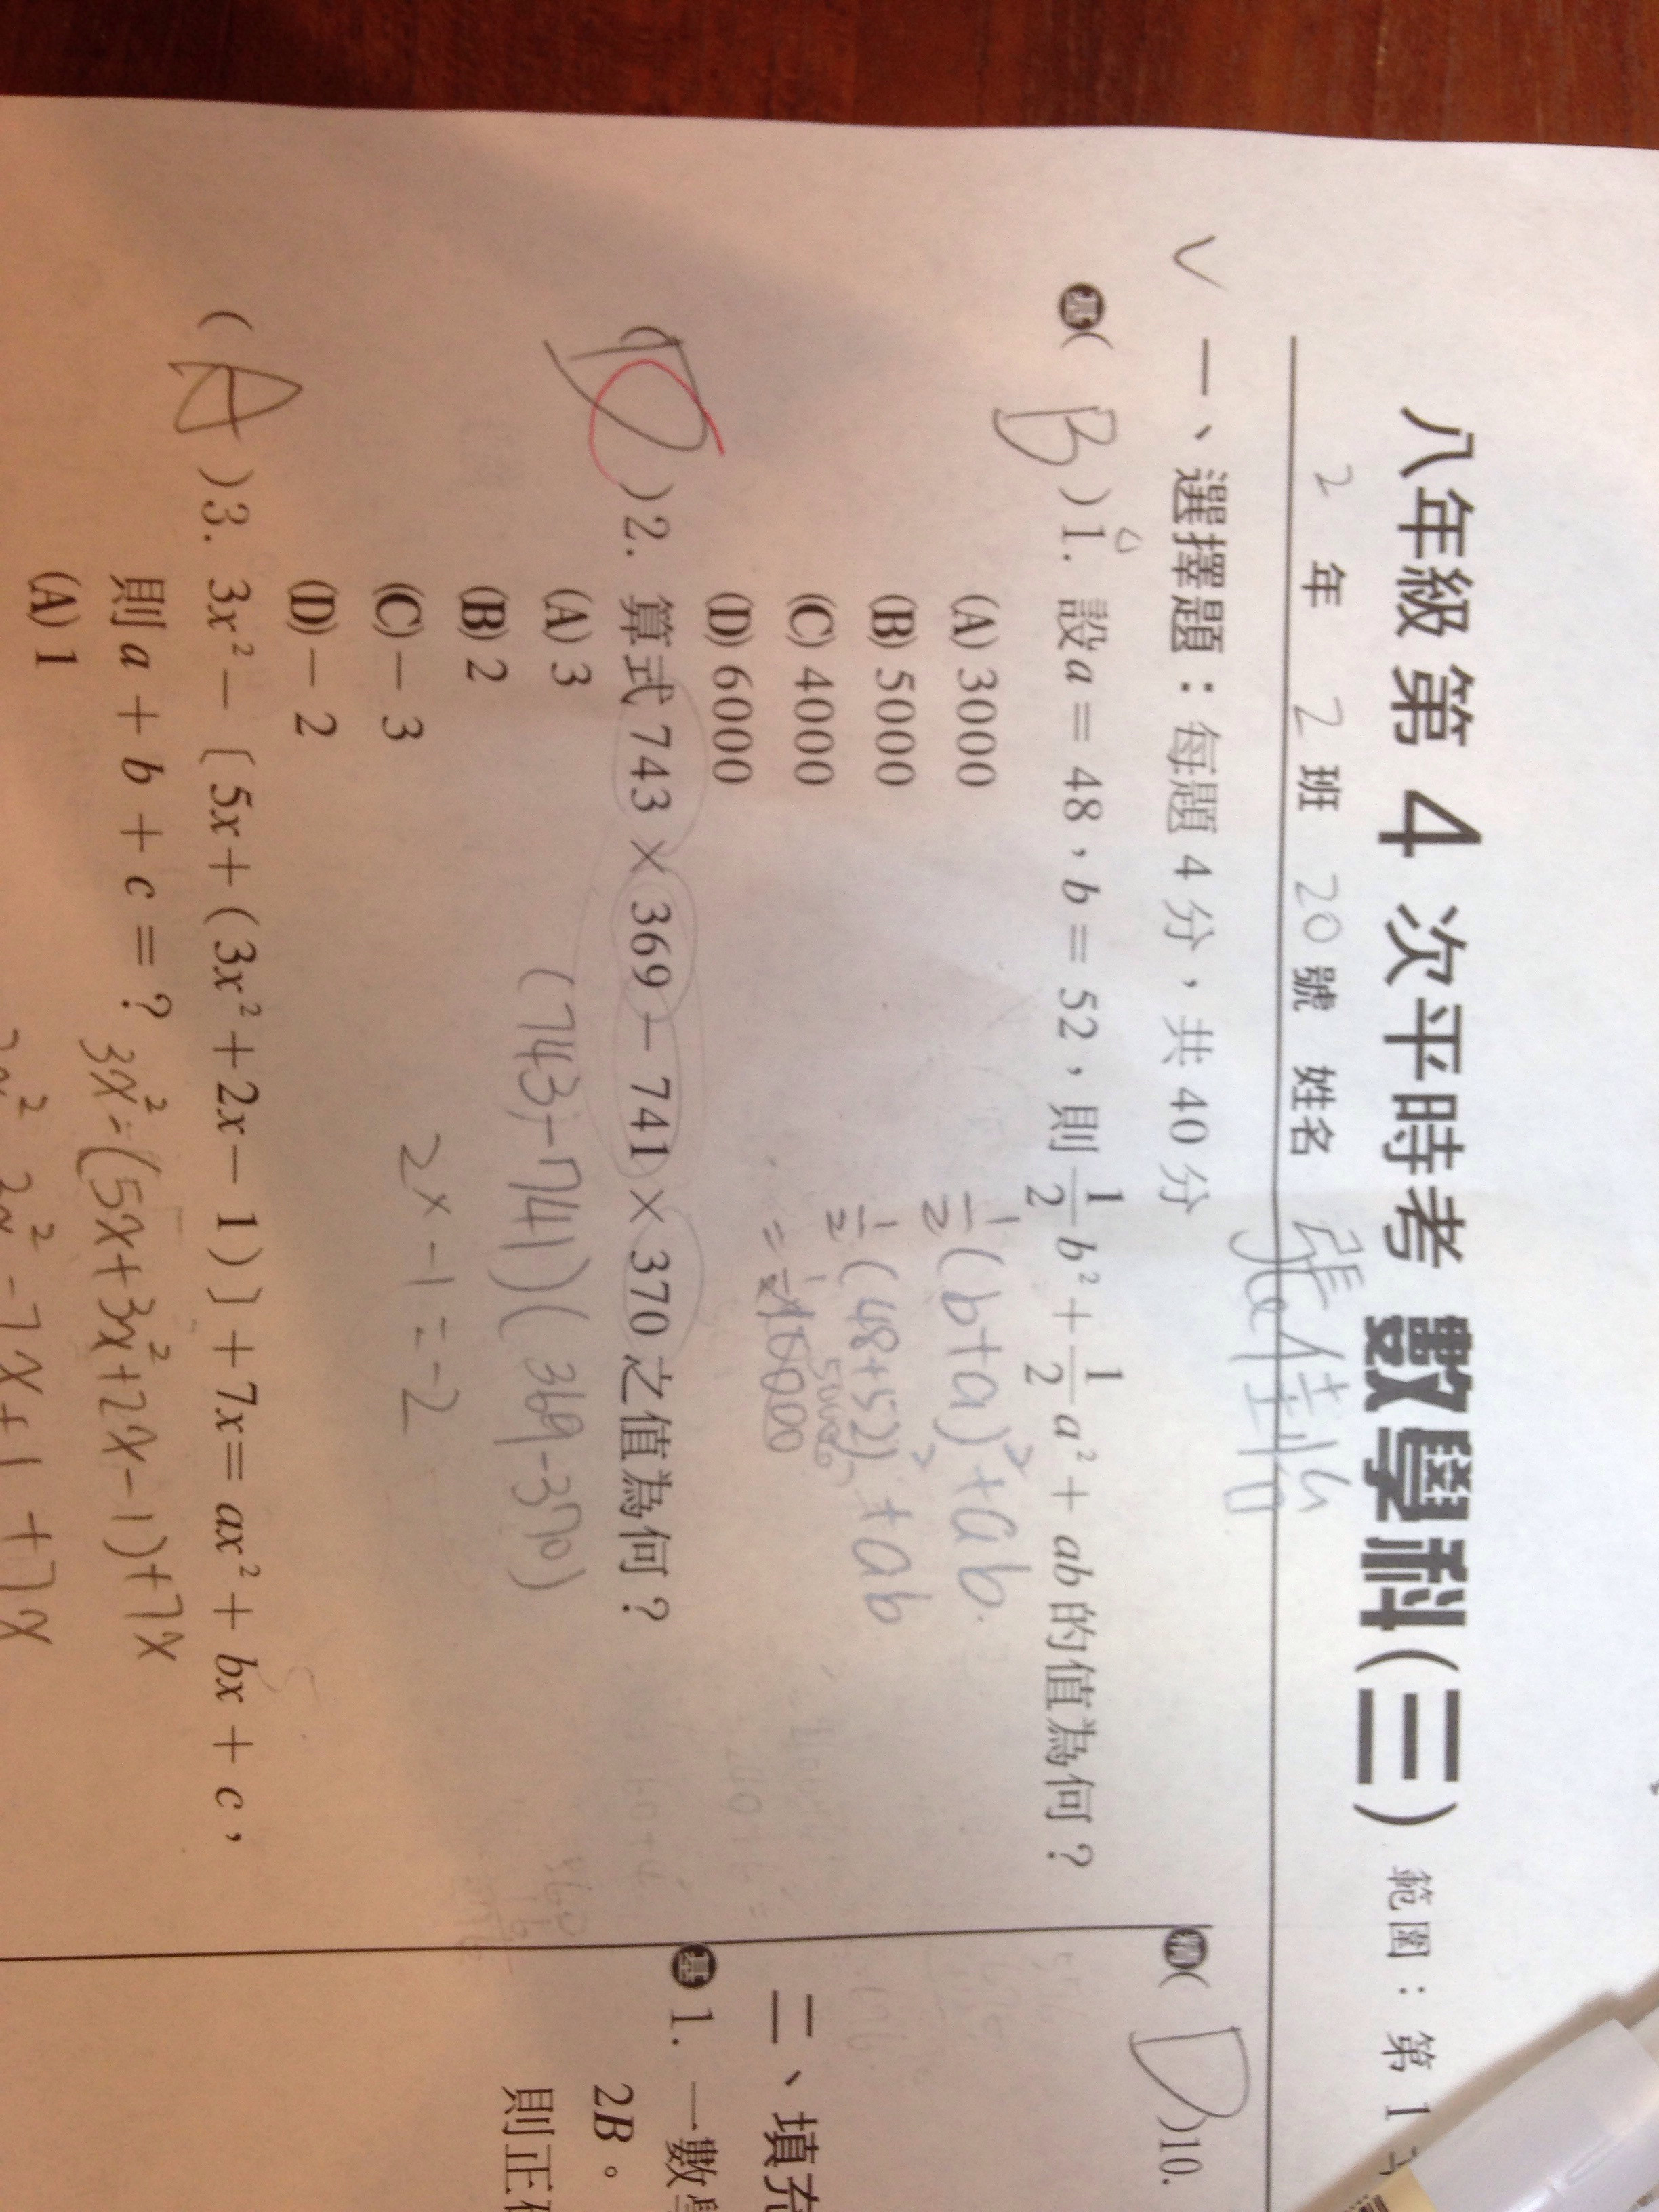 八年級 第 4 次平時考 數學科(三) 範圍：第 1
2 年 2 班 20 號 姓名
一、選擇題：每題 4 分，共 40 分
基( B )1. 設 a = 48，b = 52，則 1/2 b² + 1/2 a² + ab 的值為何？
(A) 3000
(B) 5000
(C) 4000
(D) 6000
1/2 (b+a)² + ab.
1/2 (48+52)² + ab
( )2. 算式 743 × 369 － 741 × 370 之值為何？
(A) 3
(B) 2
(C) － 3
(D) － 2
(743 - 741) ( 369 - 370)
2 × -1 = -2
( A )3. 3x² －〔5x + (3x² + 2x － 1)〕+ 7x = ax² + bx + c，
則 a + b + c = ？
(A) 1
3x² - (5x + 3x² + 2x - 1) + 7x
3x² - 7x + 1 + 7x
( D )10.
二、填充
基 1. 一數
2B。
則正